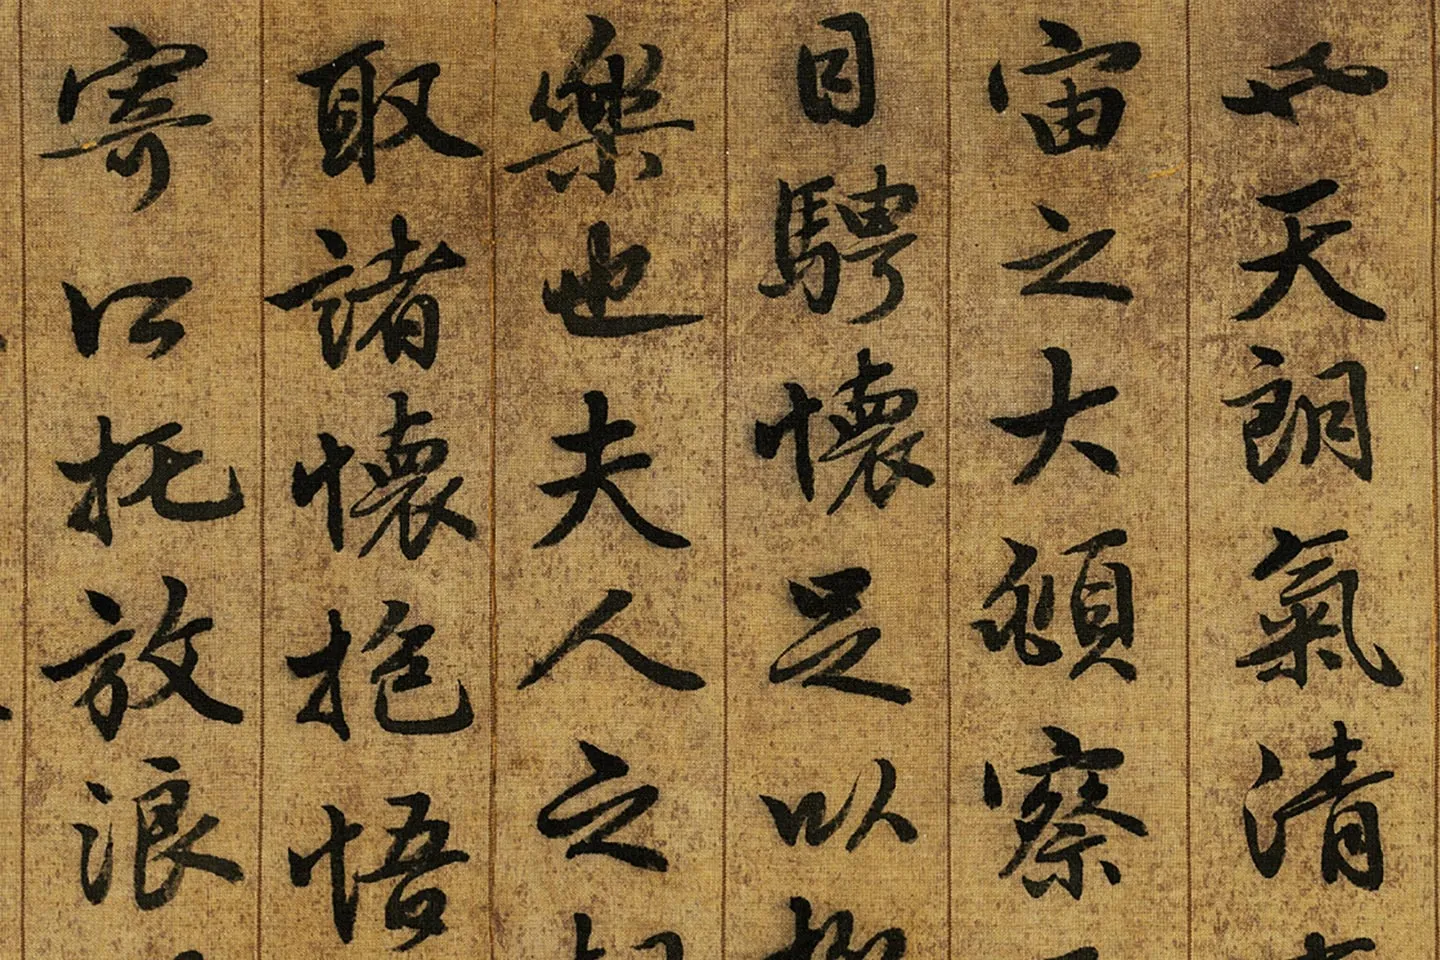 也天朗氣清
宙之大頫察
目騁懷足以極
樂也夫人之
取諸懷抱悟
寄所托放浪